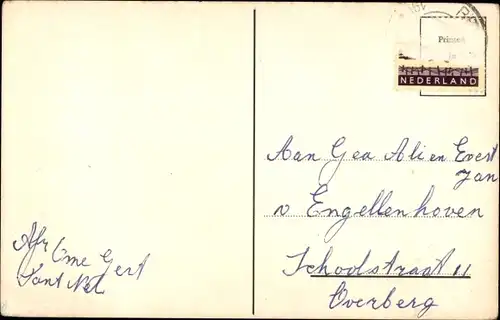 Printed
in
NEDERLAND
Aan Gea Ali en Evert
Jan
v Engellenhoven
Schoolstraat 11
Overberg
Afz Ome Gert
Tant Nel